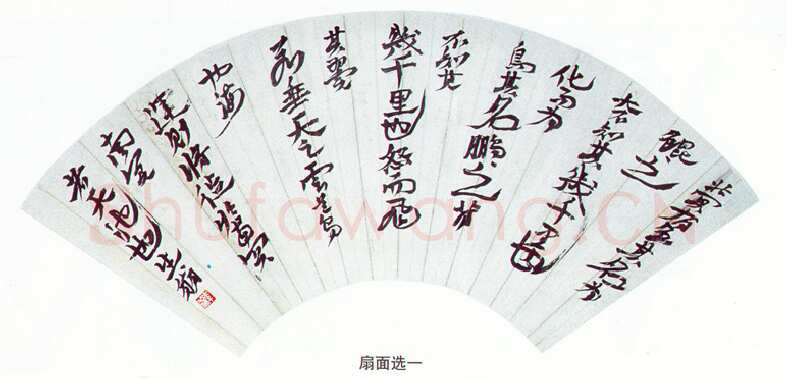 冥有魚其名為
鯤之
大不知其幾千里也
化而為
鳥其名鵬之背
不知其
幾千里也怒而飛
其翼
若垂天之雲是鳥
也海
運則將徙於南冥
南冥
者天池也生翁
shufawang.CN
扇面选一